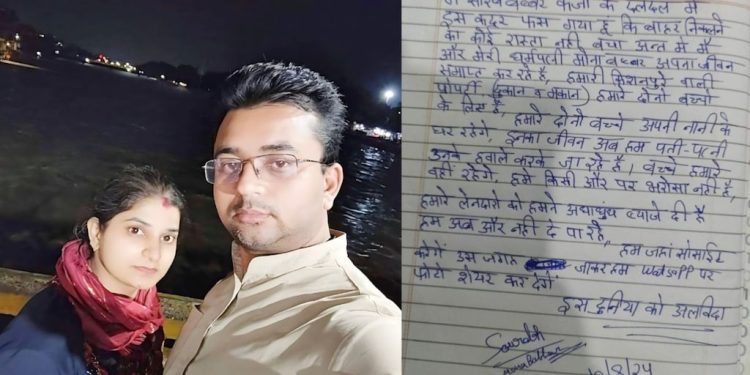 मैं सौरभ बब्बर कर्जा के दलदल में
इस कदर फंस गया हूं कि बाहर निकलने
का कोई रास्ता नहीं बचा अन्त में मैं
और मेरी धर्मपत्नी मोना बब्बर अपना जीवन
समाप्त कर रहे हैं, हमारी किशनपुरे वाली
प्रोपर्टी (दुकान व मकान) हमारे दोनों बच्चों
के लिए है,
हमारे दोनों बच्चे अपनी नानी के
घर रहेंगे, इनका जीवन अब हम पति-पत्नी
उनके हवाले करके जा रहे हैं। बच्चे हमारे
वही रहेंगे, हमें किसी और पर भरोसा नहीं है,
हमारे लेनदारो को हमने अंधाधुंध ब्याजे दी है
हम अब और नहीं दे पा रहे,
हम जहां सोसाईट
करेंगे उस जगह जाकर हम WhatsApp पर
फोटो शेयर कर देंगे
इस दुनिया को अलविदा
Saurabh
Mona Babbar
10/8/24